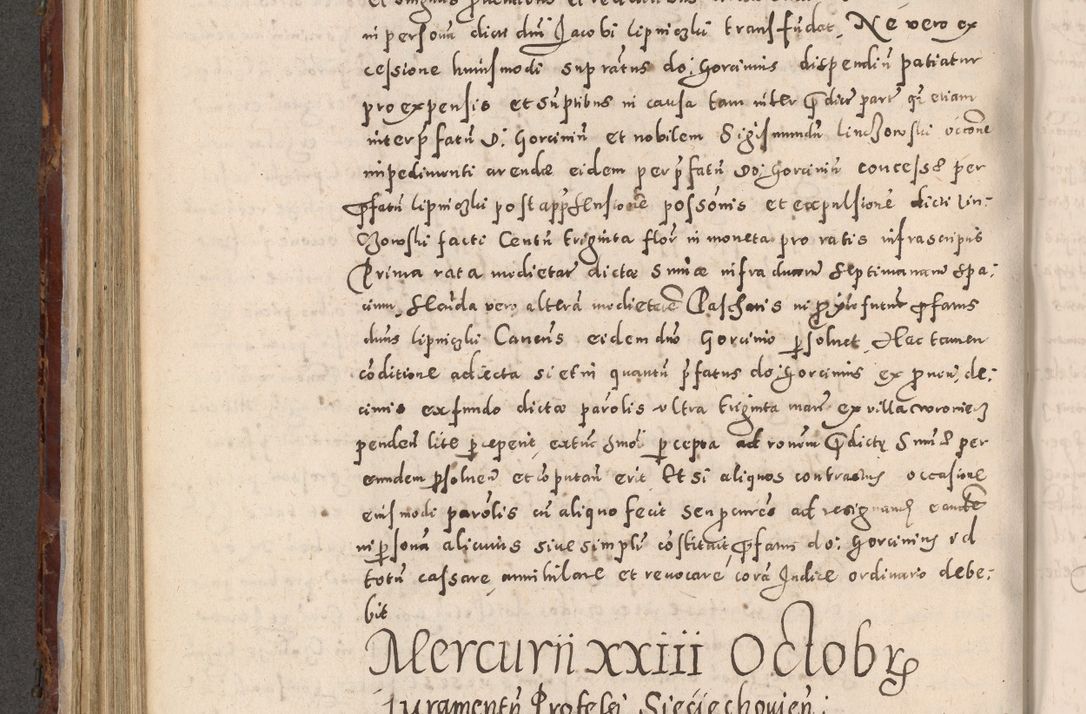 in persona dicti dni Jacobi Lipniczki transfudat, Ne vero ex
cessione huiusmodi supratus do: Gorcinius dispendiu patiatur
pro expensis et suptibus in causa tam inter pdictu part qz etiam
inter pfatu D: Gorciniu et nobilem Sigismundu Linczowski occone
impedimenti arendæ eidem per pfatu do: Gorciniu concessæ per
pfatu Lipniczki post apphensione possonis et expulsione dicti Lin-
czowski facti Centu triginta flor in moneta pro ratis infrascriptis
Prima rata medietate dictæ summæ infra duaru septimanaru spa:
cium, secuda vero altera medietate Paschatis in proxio futuru pfatus
dnus Lipniczki Canonus eidem dno Gorcinio psoluet, Hac tamen
coditione adiecta si et in quantu pfatus do: Gorcinius ex prouen, de:
cimis ex fundo dictæ parolis ultra triginta marc ex villa
penden lite pceperit, extuc simoli pcepta ad ronem pdicty summæ per
eundem psoluen et coputan erit Et si aliquos contractus occasione
eiusmodi parolis cu aliquo fecit seu pcures ad resignand eande
in psona alicuius siue simplr costituit, pfatus do: Gorcinius id
totu cassare annihilare et reuocare cora Judice ordinario debe:
bit
Mercurii xxiii Octobr
Juramentu Profess Sieciechouien: